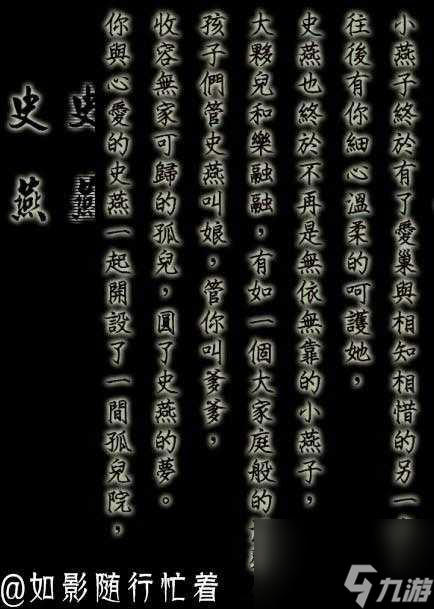 史燕
史燕
你與心愛的史燕一起開設了一間孤兒院，
收容無家可歸的孤兒，圓了史燕的夢。
孩子們管史燕叫娘，管你叫爹爹，
大夥兒和樂融融，有如一個大家庭般的
史燕也終於不再是無依無靠的小燕子，
往後有你細心溫柔的呵護她，
小燕子終於有了愛巢與相知相惜的另一
@如影随行忙着
九游